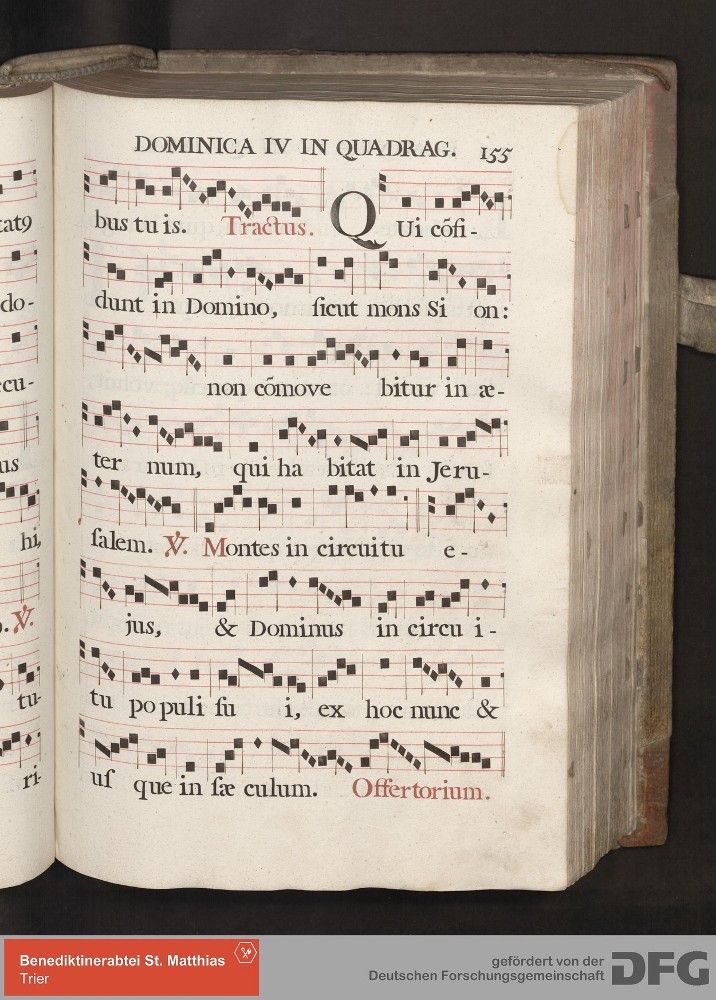 DOMINICA IV IN QUADRAG. 155
bus tu is. Tractus. QUi cõfi-
dunt in Domino, ſicut mons Si on:
non cõmove bitur in æ-
ter num, qui ha bitat in Jeru-
ſalem. ℣. Montes in circuitu e-
jus, & Dominus in circu i-
tu po puli ſu i, ex hoc nunc &
uſ que in ſæ culum. Offertorium.
tat9
do-
cu-
us
hi,
. ℣.
tu-
ri-
Benediktinerabtei St. Matthias
Trier
gefördert von der
Deutschen Forschungsgemeinschaft
DFG